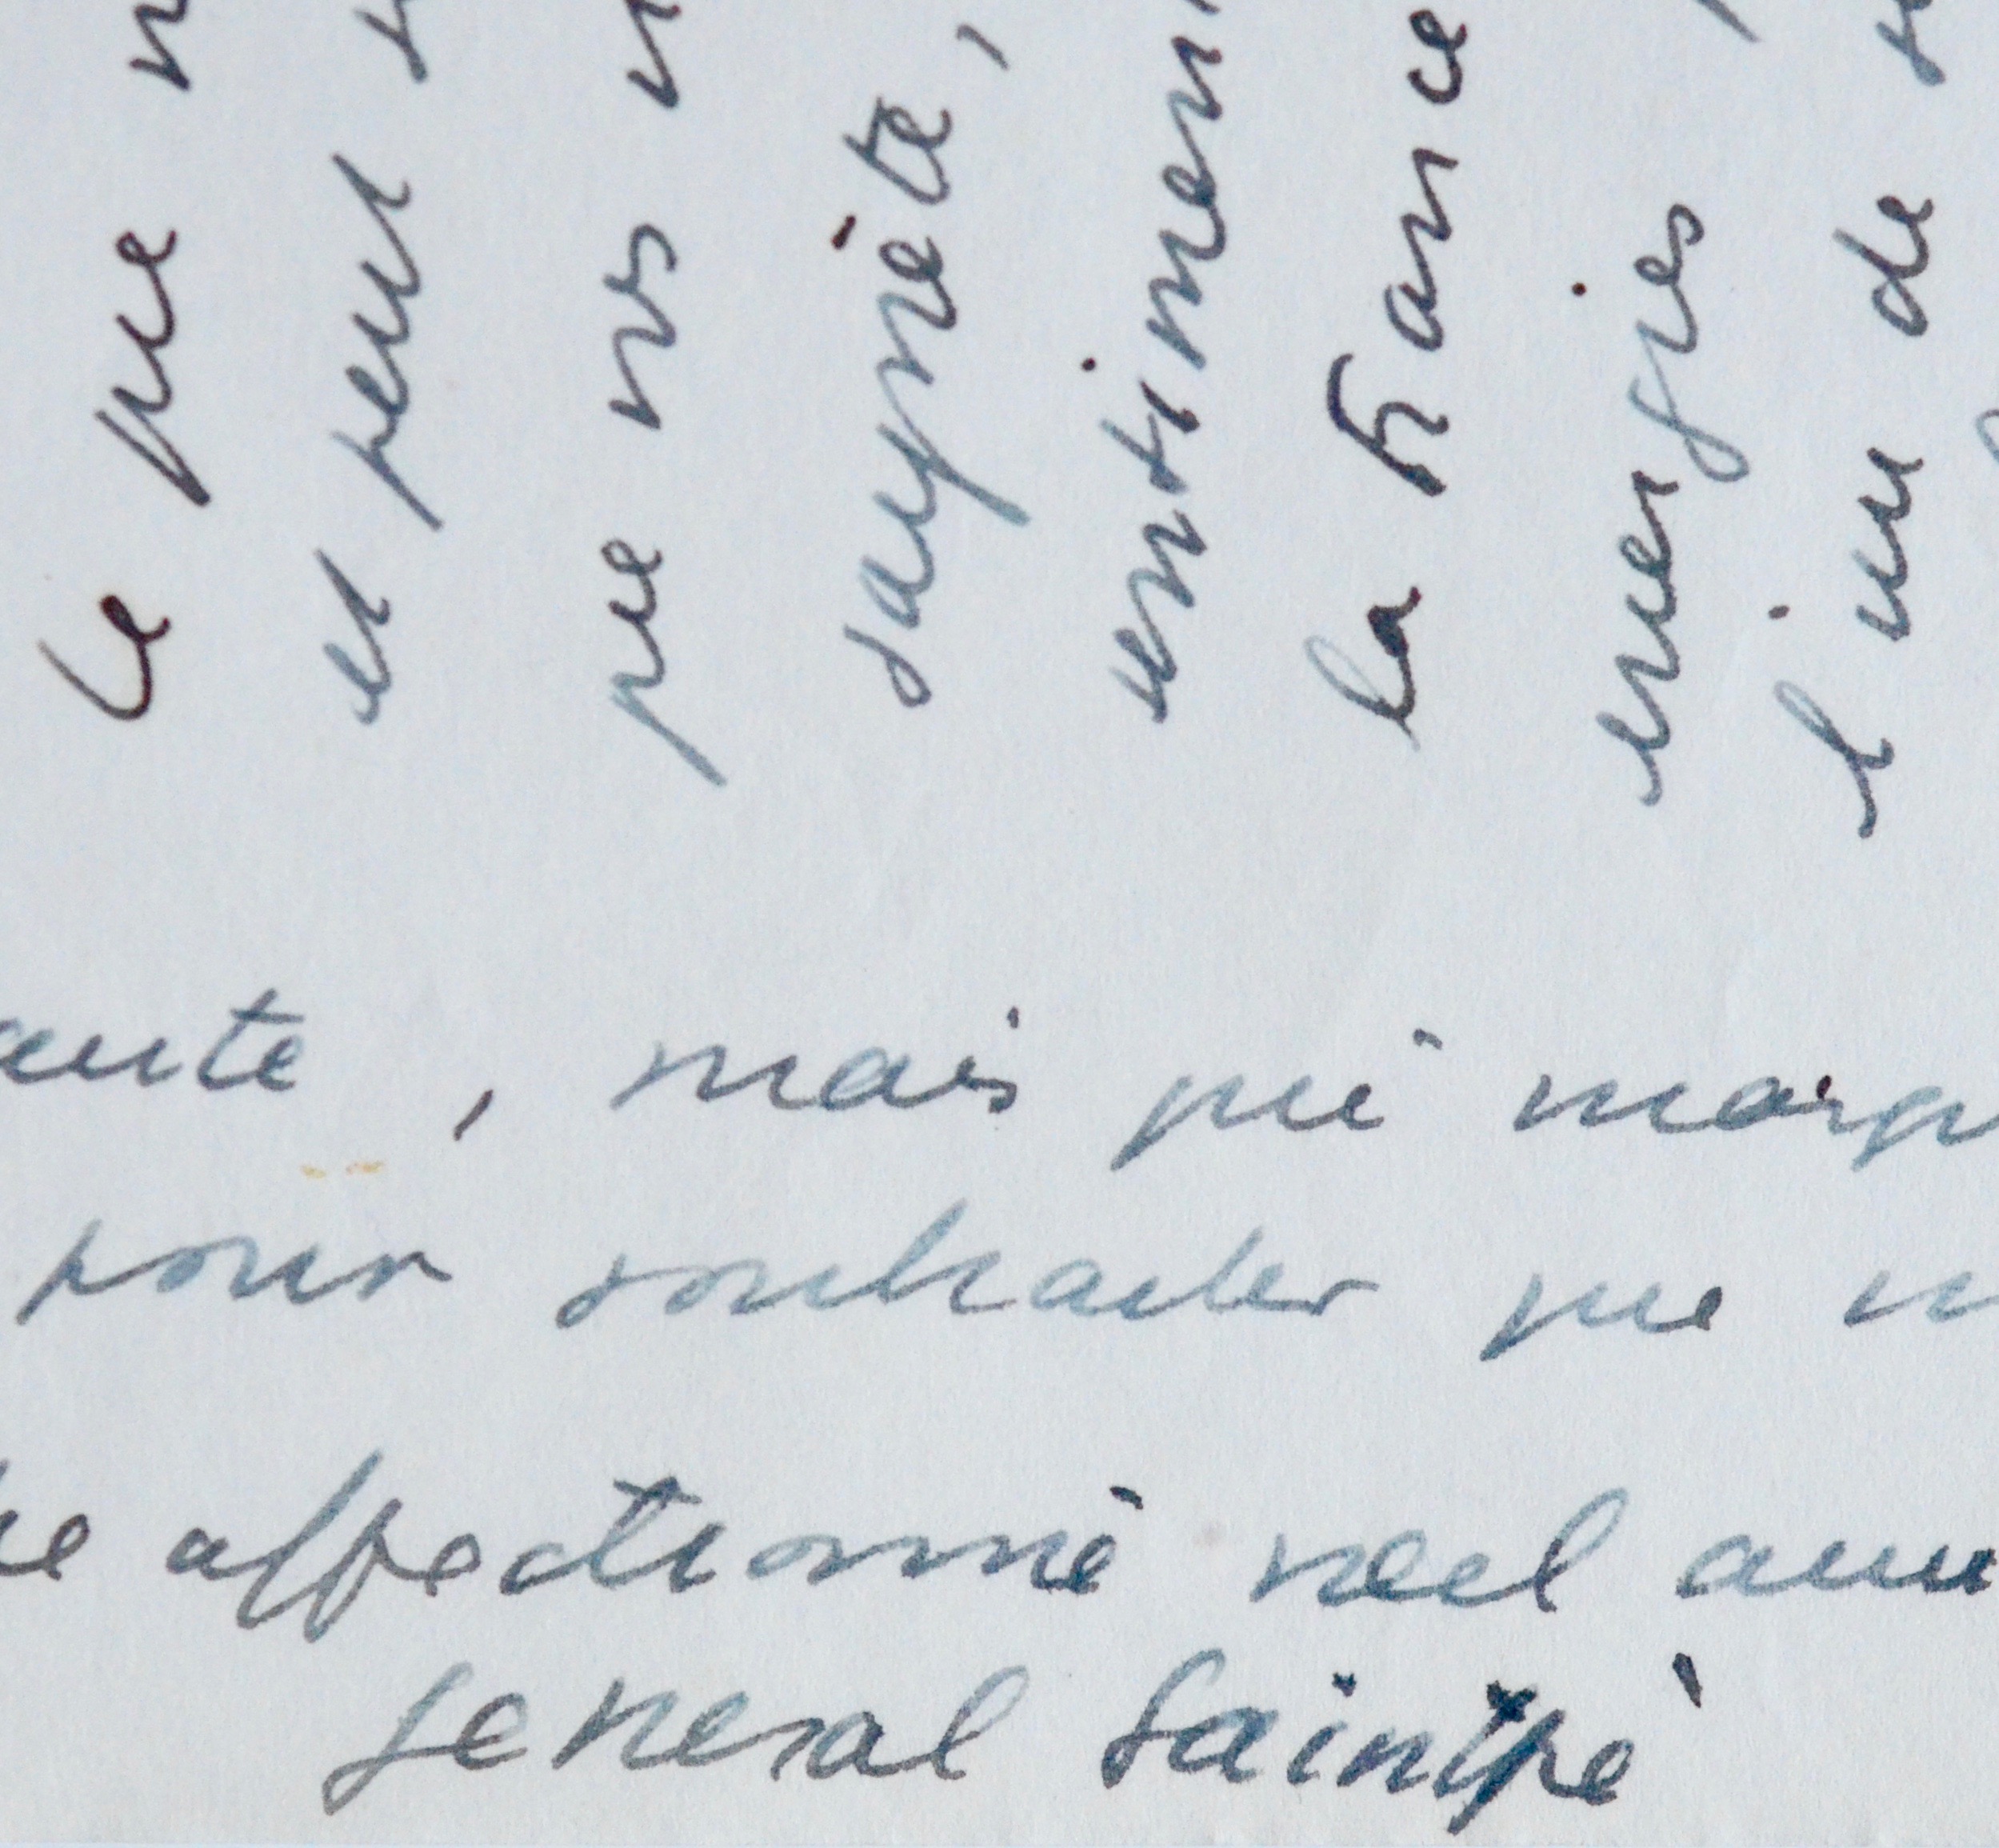 Ce que n
et peut
que ns n
sentimen
la France
énergies
l'un de
aute, mais qui marqu
pour souhaiter que n
affectionné vieil ami
général Saintpé